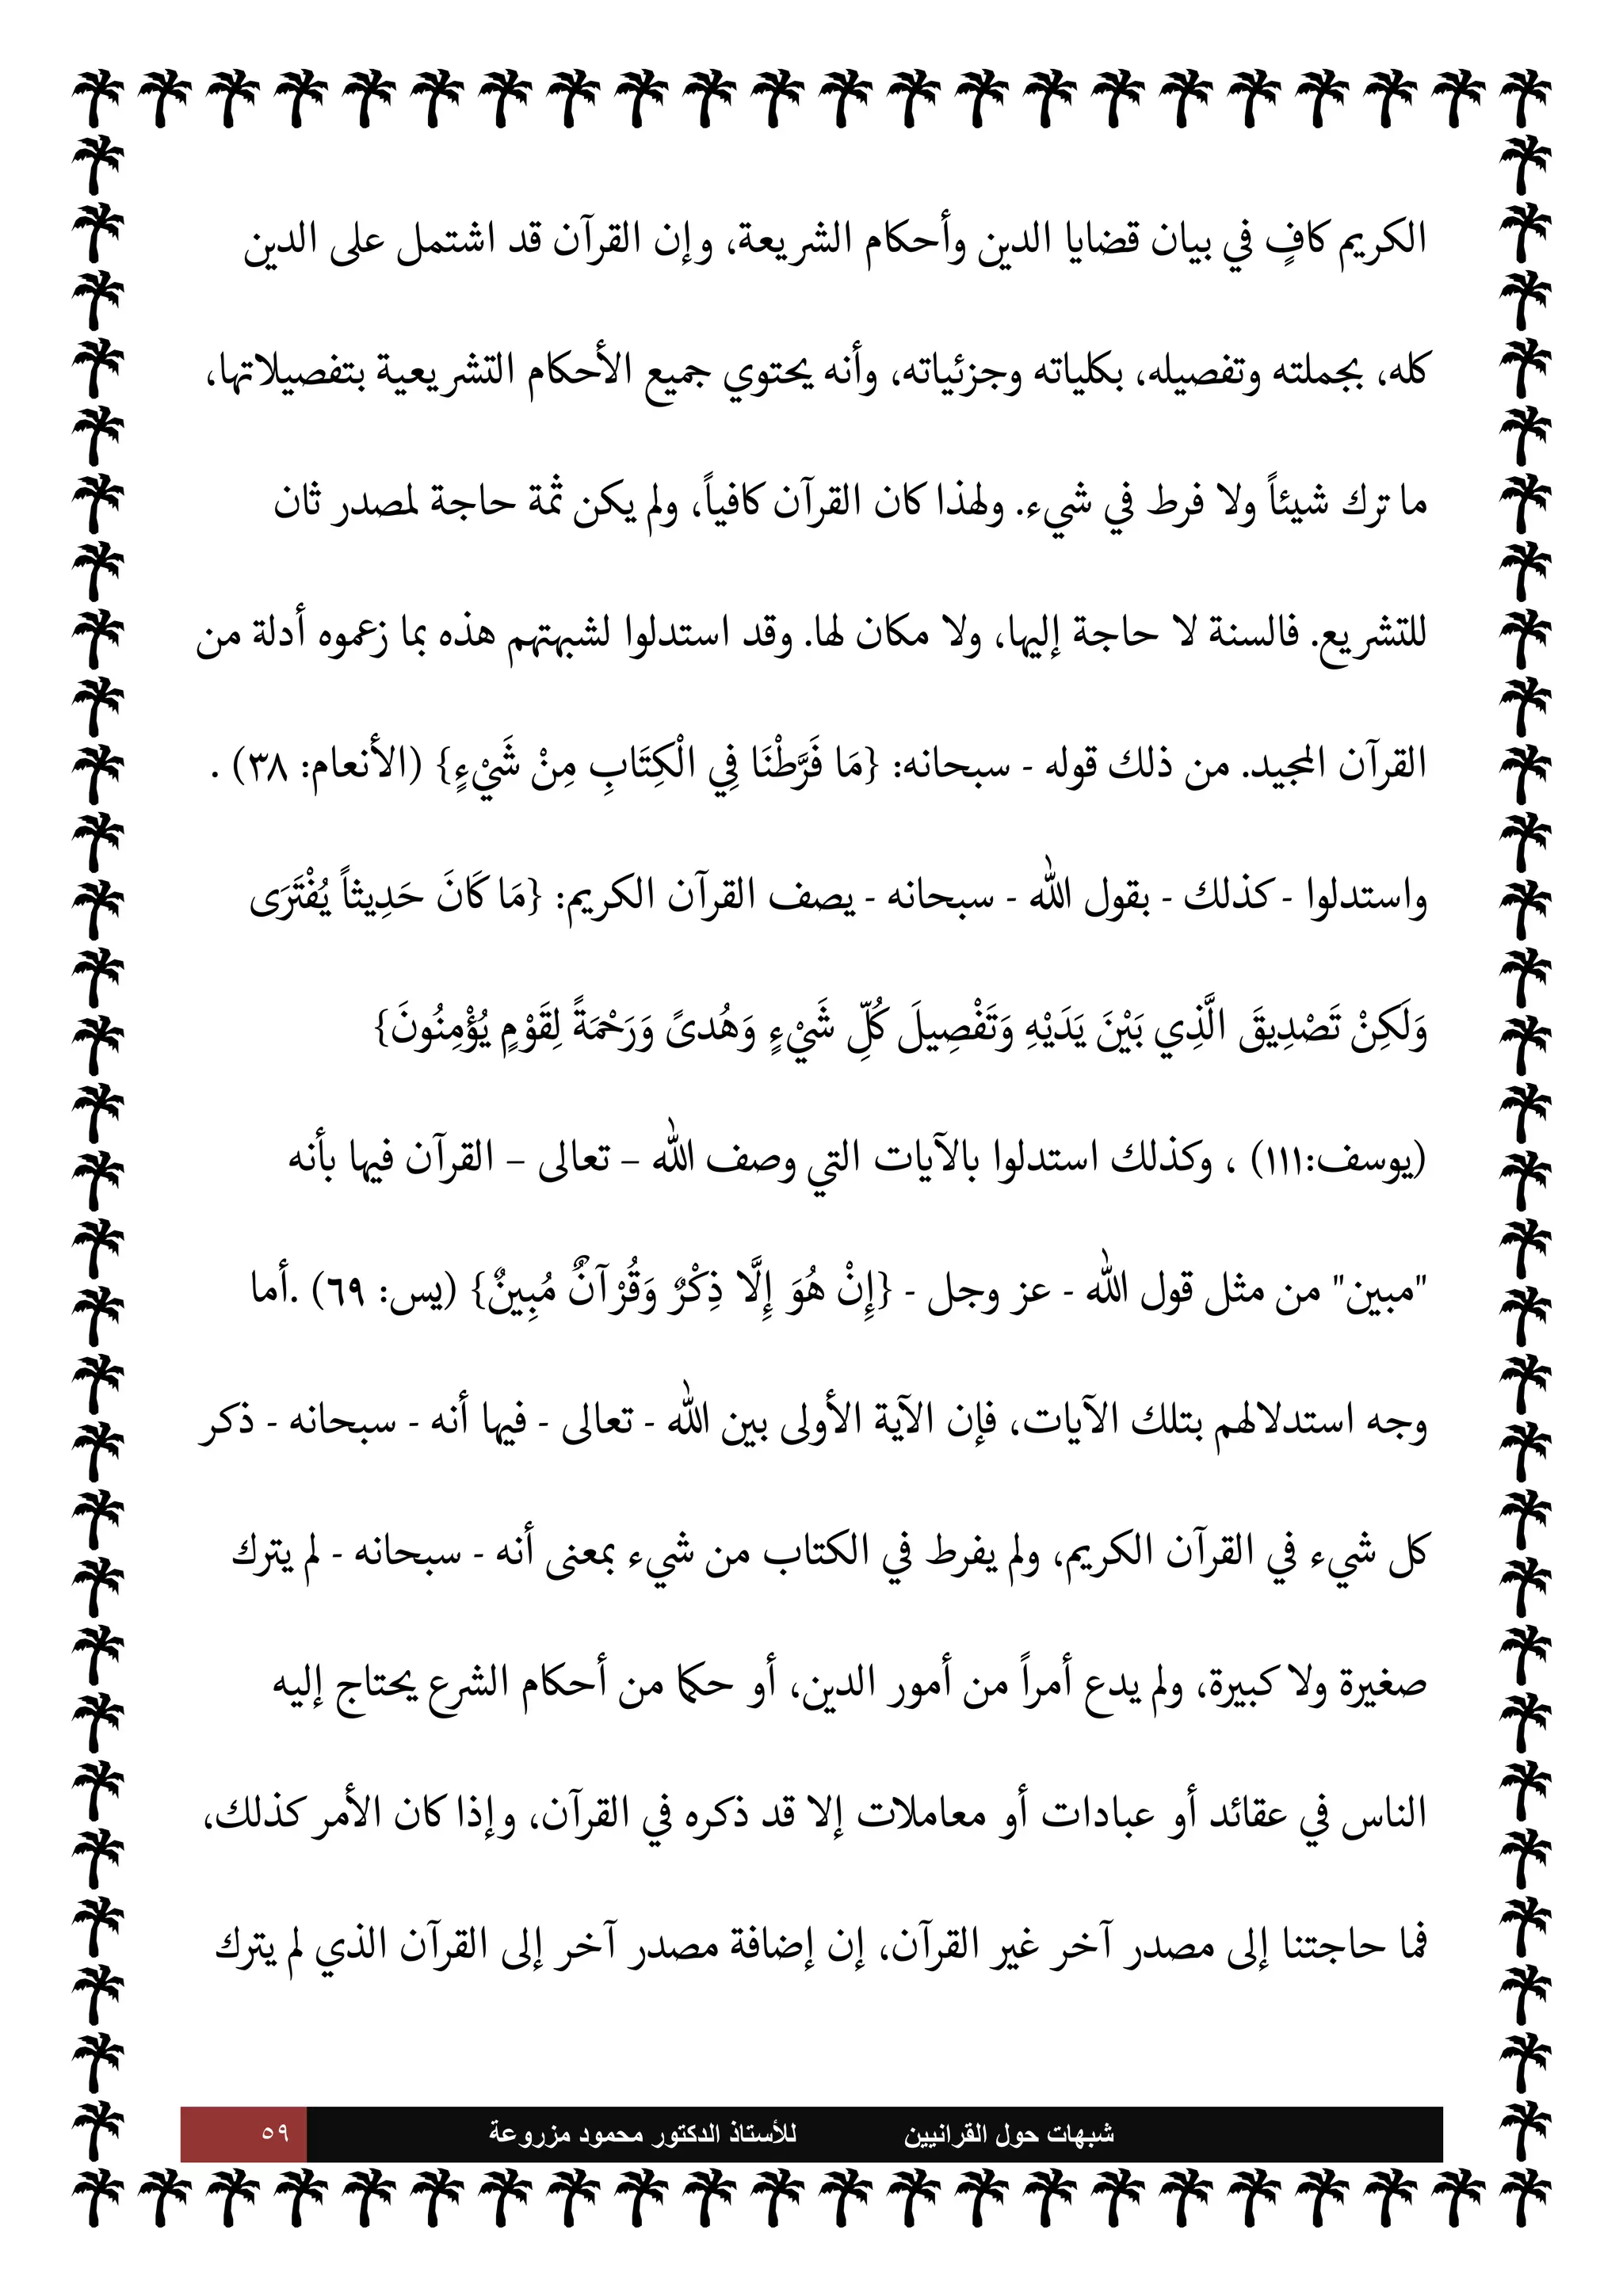 الكريم كافٍ في بيان قضايا الدين وأحكام الشريعة، وإن القرآن قد اشتمل على الدين
كله، بجملته وتفصيله، بكلياته وجزئياته، وأنه يحتوي جميع الأحكام التشريعية بتفصيلاتها،
ما ترك شيئاً ولا فرط في شيء. ولهذا كان القرآن كافياً، ولم يكن ثمة حاجة لمصدر ثان
للتشريع. فالسنة لا حاجة إليها، ولا مكان لها. وقد استدلوا لشبهتهم هذه بما زعموه أدلة من
القرآن المجيد. من ذلك قوله - سبحانه: {مَا فَرَّطْنَا فِي الْكِتَابِ مِنْ شَيْءٍ} (الأنعام: ٣٨) .
واستدلوا - كذلك - بقول الله - سبحانه - يصف القرآن الكريم: {مَا كَانَ حَدِيثاً يُفْتَرَى
وَلَكِنْ تَصْدِيقَ الَّذِي بَيْنَ يَدَيْهِ وَتَفْصِيلَ كُلِّ شَيْءٍ وَهُدىً وَرَحْمَةً لِقَوْمٍ يُؤْمِنُونَ}
(يوسف:١١١) ، وكذلك استدلوا بالآيات التي وصف الله – تعالى – القرآن فيها بأنه
"مبين" من مثل قول الله - عز وجل - {إِنْ هُوَ إِلَّا ذِكْرٌ وَقُرْآنٌ مُبِينٌ} (يس: ٦٩) .أما
وجه استدلالهم بتلك الآيات، فإن الآية الأولى بين الله - تعالى - فيها أنه - سبحانه - ذكر
كل شيء في القرآن الكريم، ولم يفرط في الكتاب من شيء بمعنى أنه - سبحانه - لم يترك
صغيرة ولا كبيرة، ولم يدع أمراً من أمور الدين، أو حكم من أحكام الشرع يحتاج إليه
الناس في عقائد أو عبادات أو معاملات إلا قد ذكره في القرآن، وإذا كان الأمر كذلك،
فما حاجتنا إلى مصدر آخر غير القرآن، إن إضافة مصدر آخر إلى القرآن الذي لم يترك
شبهات حول القرانيين للأستاذ الدكتور محمود مزروعة ٥٩